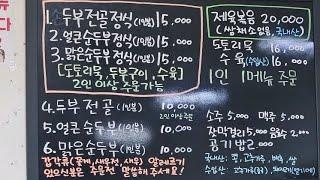 1. 두부전골정식(1인분) 15,000
2. 얼큰순두부정식(1인분) 15,000
3. 맑은순두부정식(1인분) 15,000
[도토리묵, 두부구이, 수육]
2인 이상 주문가능
4. 두부전골(1인분) 10,000
2인 이상 주문
5. 얼큰순두부(1인분) 10,000
6. 맑은순두부(1인분) 10,000
갑각류(꽃게, 새우젓, 새우) 알레르기
있으신분은 주문전 말씀해 주세요!
제육볶음 20,000
(쌈채소없음, 국내산)
도토리묵 16,000
수육 16,000
1인 1메뉴 주문
소주 5,000 맥주 5,000
공기밥 2,000